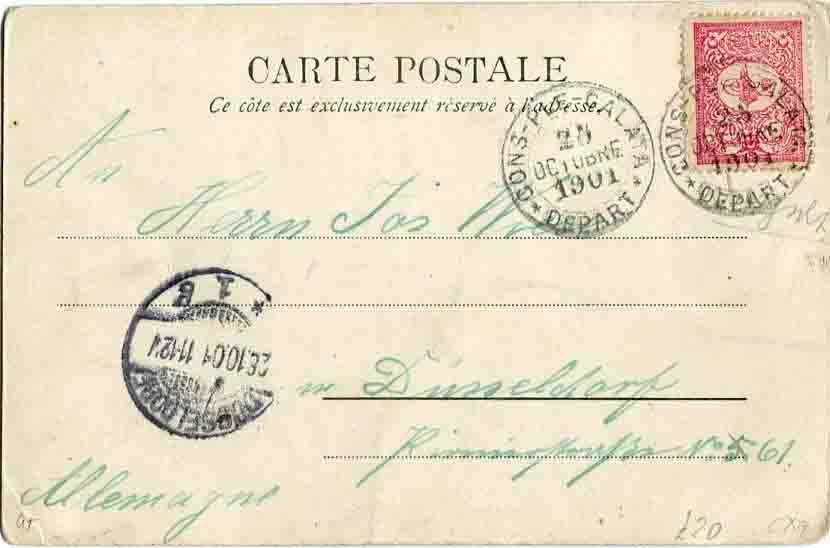 CARTE POSTALE
Ce côte est exclusivement réservé à l'adresse.
CONS-PLE-GALATA
25
OCTOBRE
1901
* DEPART *
CONS-PLE-GALATA
25
OCTOBRE
1901
* DEPART *
An
Herrn Jos
* 1 g
26.10.01 11-12V
DÜSSELDORF
in Düsseldorf
No 561
Allemagne
£20